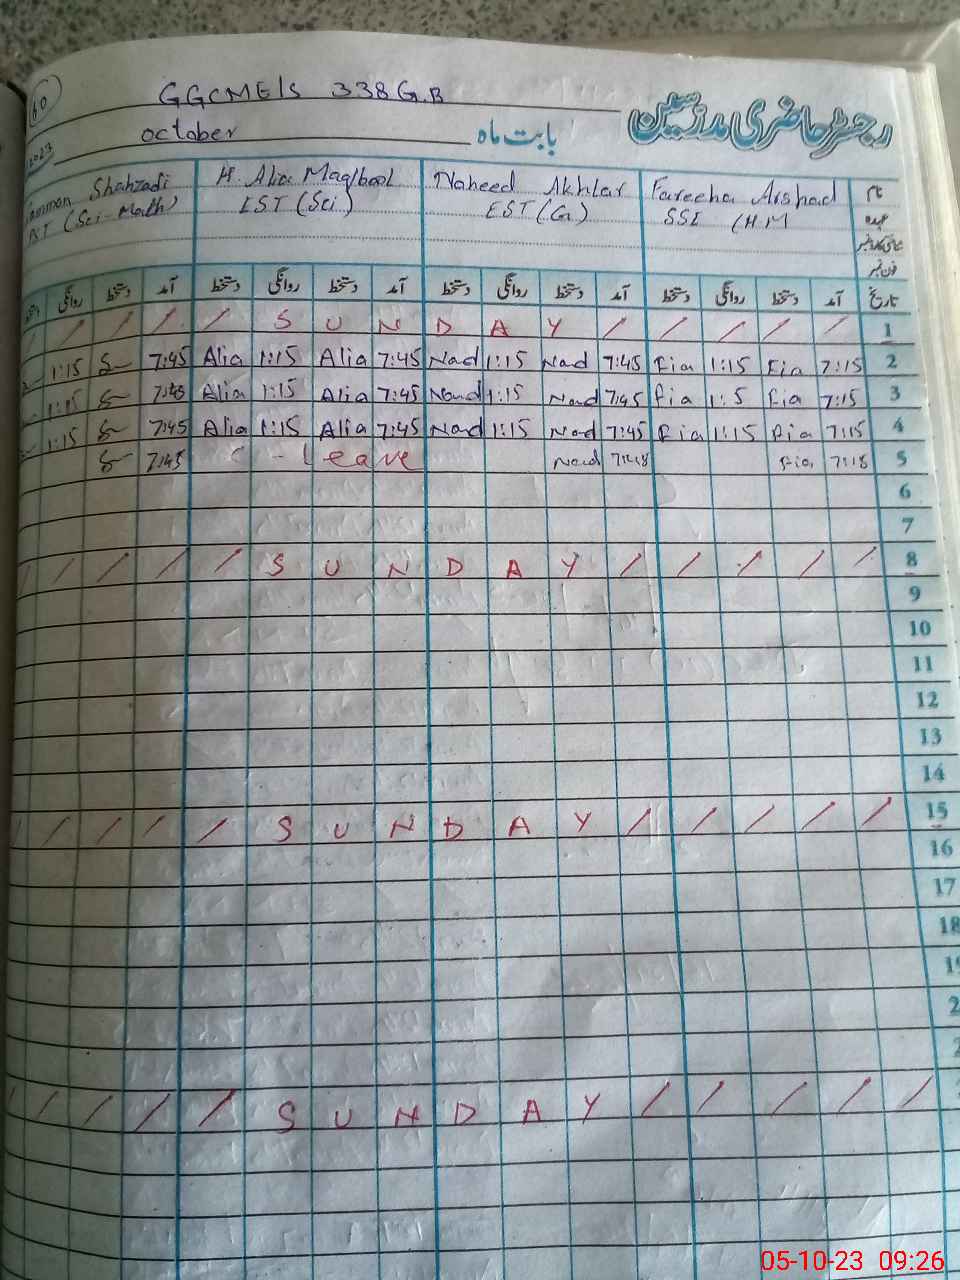 60
GGCME/S 338 G.B
رجسٹر حاضری مدرسین
2023 October بابت ماہ
Shahzadi H. Alia Maqbool Naheed Akhtar Fareeha Arshad نام
(Sci-Math) EST (Sci) EST (G) SSE (H.M عہدہ
فون نمبر
روانگی دستخط آمد دستخط روانگی دستخط آمد دستخط روانگی دستخط آمد دستخط روانگی دستخط آمد تاریخ
/ / / / S U N D A Y / / / / / 1
1:15 7:45 Alia 1:15 Alia 7:45 Nad 1:15 Nad 7:45 Fia 1:15 Fia 7:15 2
1:15 7:45 Alia 1:15 Alia 7:45 Nad 1:15 Nad 7:45 fia 1:5 fia 7:15 3
1:15 7:45 Alia 1:15 Alia 7:45 Nad 1:15 Nad 7:45 fia 1:15 fia 7:15 4
7:45 C - Leave Nad 7:48 fia 7:18 5
6
7
/ / / / / S U N D A Y / / / / / 8
9
10
11
12
13
14
/ / / / / S U N D A Y / / / / / 15
16
17
18
/ / / / / S U N D A Y / / / / /
05-10-23 09:26